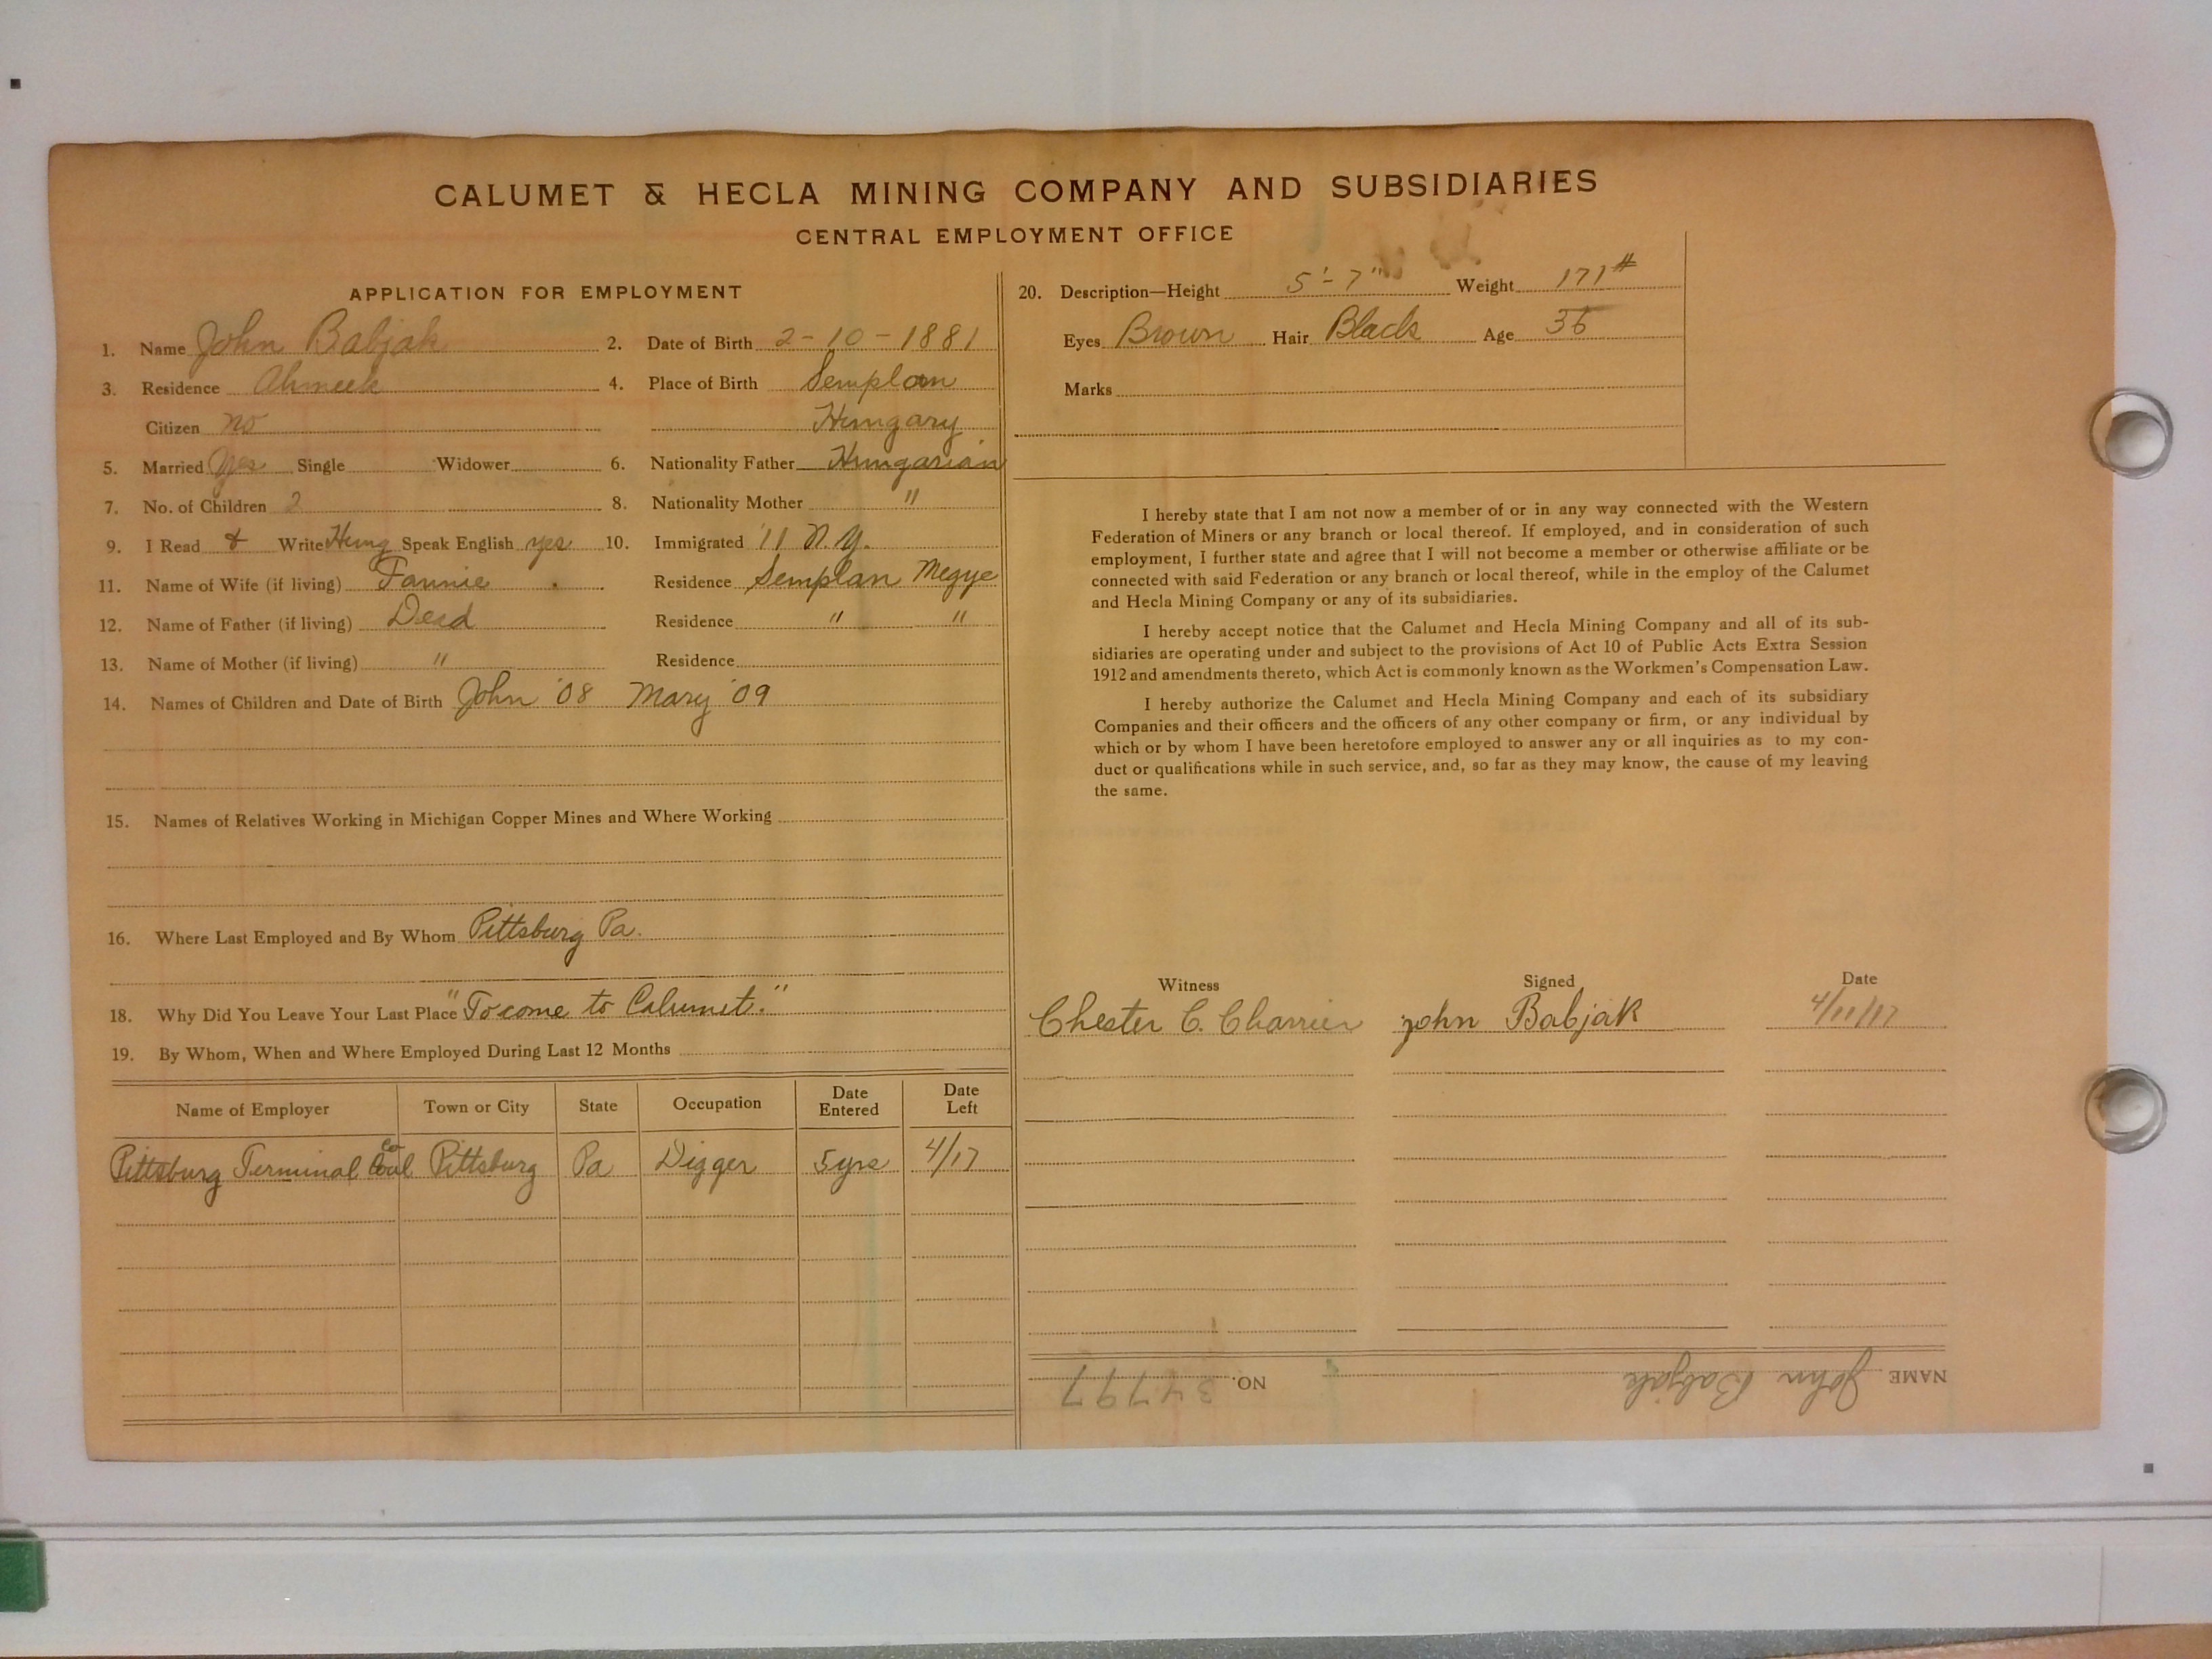 CALUMET & HECLA MINING COMPANY AND SUBSIDIARIES
CENTRAL EMPLOYMENT OFFICE
APPLICATION FOR EMPLOYMENT
1. Name John Babjak 2. Date of Birth 2-10-1881
3. Residence Ahmeek 4. Place of Birth Semplan
Citizen no Hungary
5. Married Yes Single Widower 6. Nationality Father Hungarian
7. No. of Children 2 8. Nationality Mother "
9. I Read & Write Hung Speak English yes 10. Immigrated '11 N.Y.
11. Name of Wife (if living) Fannie Residence Semplan Megye
12. Name of Father (if living) Dead Residence " "
13. Name of Mother (if living) " Residence
14. Names of Children and Date of Birth John '08 Mary '09
15. Names of Relatives Working in Michigan Copper Mines and Where Working
16. Where Last Employed and By Whom Pittsburg Pa.
18. Why Did You Leave Your Last Place "To come to Calumet."
19. By Whom, When and Where Employed During Last 12 Months
Name of Employer Town or City State Occupation Date Entered Date Left
Pittsburg Terminal Coal Co Pittsburg Pa Digger 5 yrs 4/17
20. Description—Height 5'-7" Weight 171#
Eyes Brown Hair Black Age 36
Marks
I hereby state that I am not now a member of or in any way connected with the Western
Federation of Miners or any branch or local thereof. If employed, and in consideration of such
employment, I further state and agree that I will not become a member or otherwise affiliate or be
connected with said Federation or any branch or local thereof, while in the employ of the Calumet
and Hecla Mining Company or any of its subsidiaries.
I hereby accept notice that the Calumet and Hecla Mining Company and all of its sub-
sidiaries are operating under and subject to the provisions of Act 10 of Public Acts Extra Session
1912 and amendments thereto, which Act is commonly known as the Workmen's Compensation Law.
I hereby authorize the Calumet and Hecla Mining Company and each of its subsidiary
Companies and their officers and the officers of any other company or firm, or any individual by
which or by whom I have been heretofore employed to answer any or all inquiries as to my con-
duct or qualifications while in such service, and, so far as they may know, the cause of my leaving
the same.
Witness Signed Date
Chester C. Charrier John Babjak 4/11/17
NAME John Babjak NO. 34797